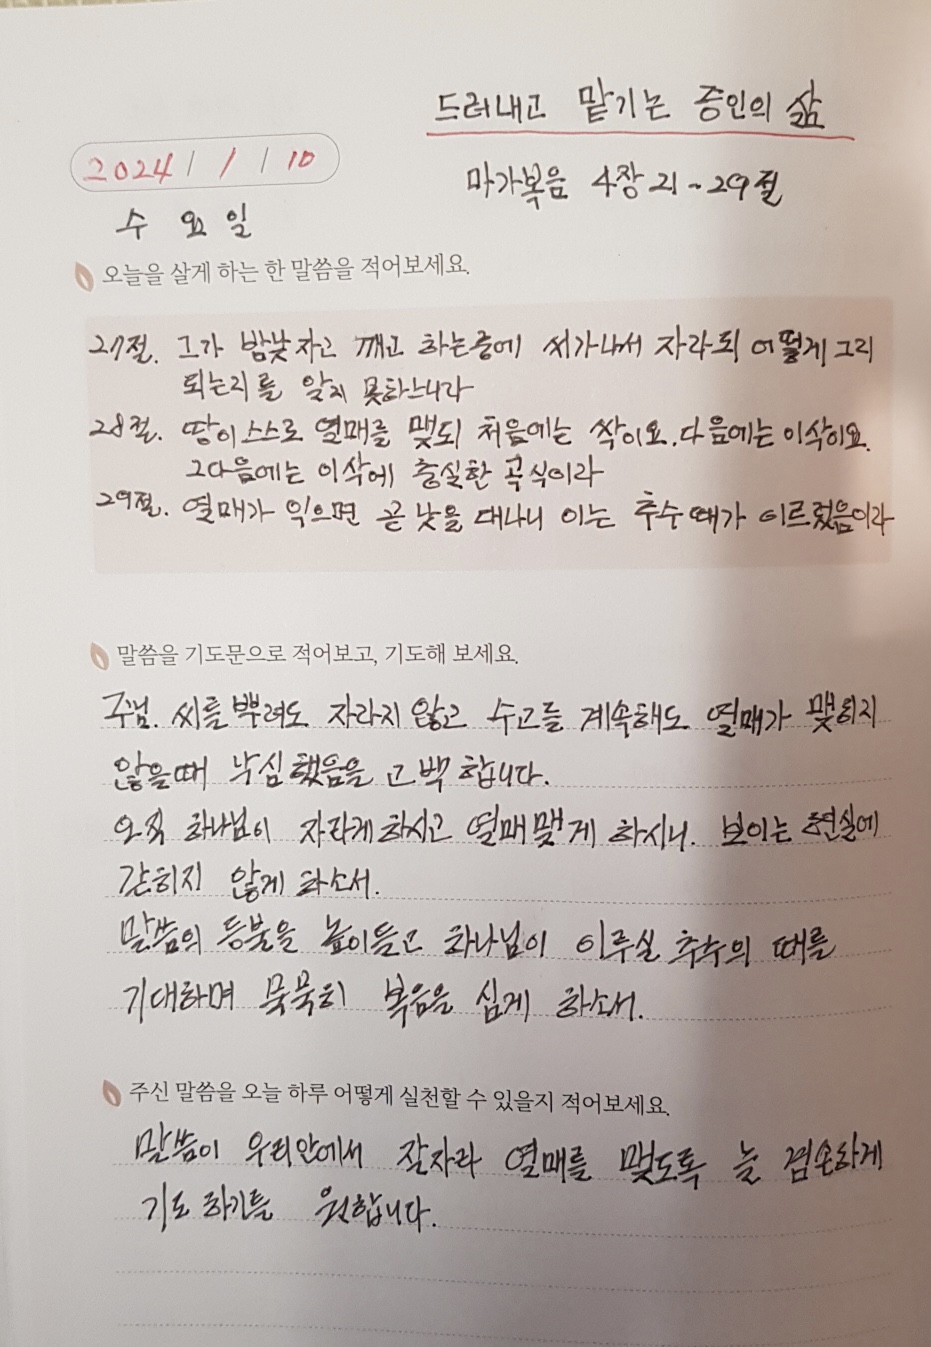 드러내고 맡기는 증인의 삶
2024 / 1 / 10
마가복음 4장 21~29절
수요일
오늘을 살게 하는 한 말씀을 적어보세요.
27절. 그가 밤낮 자고 깨고 하는중에 씨가나서 자라되 어떻게 그리
되는리를 알지 못하느니라
28절. 땅이 스스로 열매를 맺되 처음에는 싹이요. 다음에는 이삭이요.
그다음에는 이삭에 충실한 곡식이라
29절. 열매가 익으면 곧 낫을 대나니 이는 추수때가 이르렀음이라
말씀을 기도문으로 적어보고, 기도해 보세요.
주님. 씨를 뿌려도 자라지 않고 수고를 계속해도 열매가 맺히지
않을때 낙심했음을 고백합니다.
오직 하나님이 자라게하시고 열매맺게 하시니. 보이는 현실에
갇히지 않게 하소서.
말씀의 등불을 높이들고 하나님이 이루실 추수의 때를
기대하며 묵묵히 복음을 심게 하소서.
주신 말씀을 오늘 하루 어떻게 실천할 수 있을지 적어보세요.
말씀이 우리안에서 잘자라 열매를 맺도록 늘 겸손하게
기도하기를 원합니다.